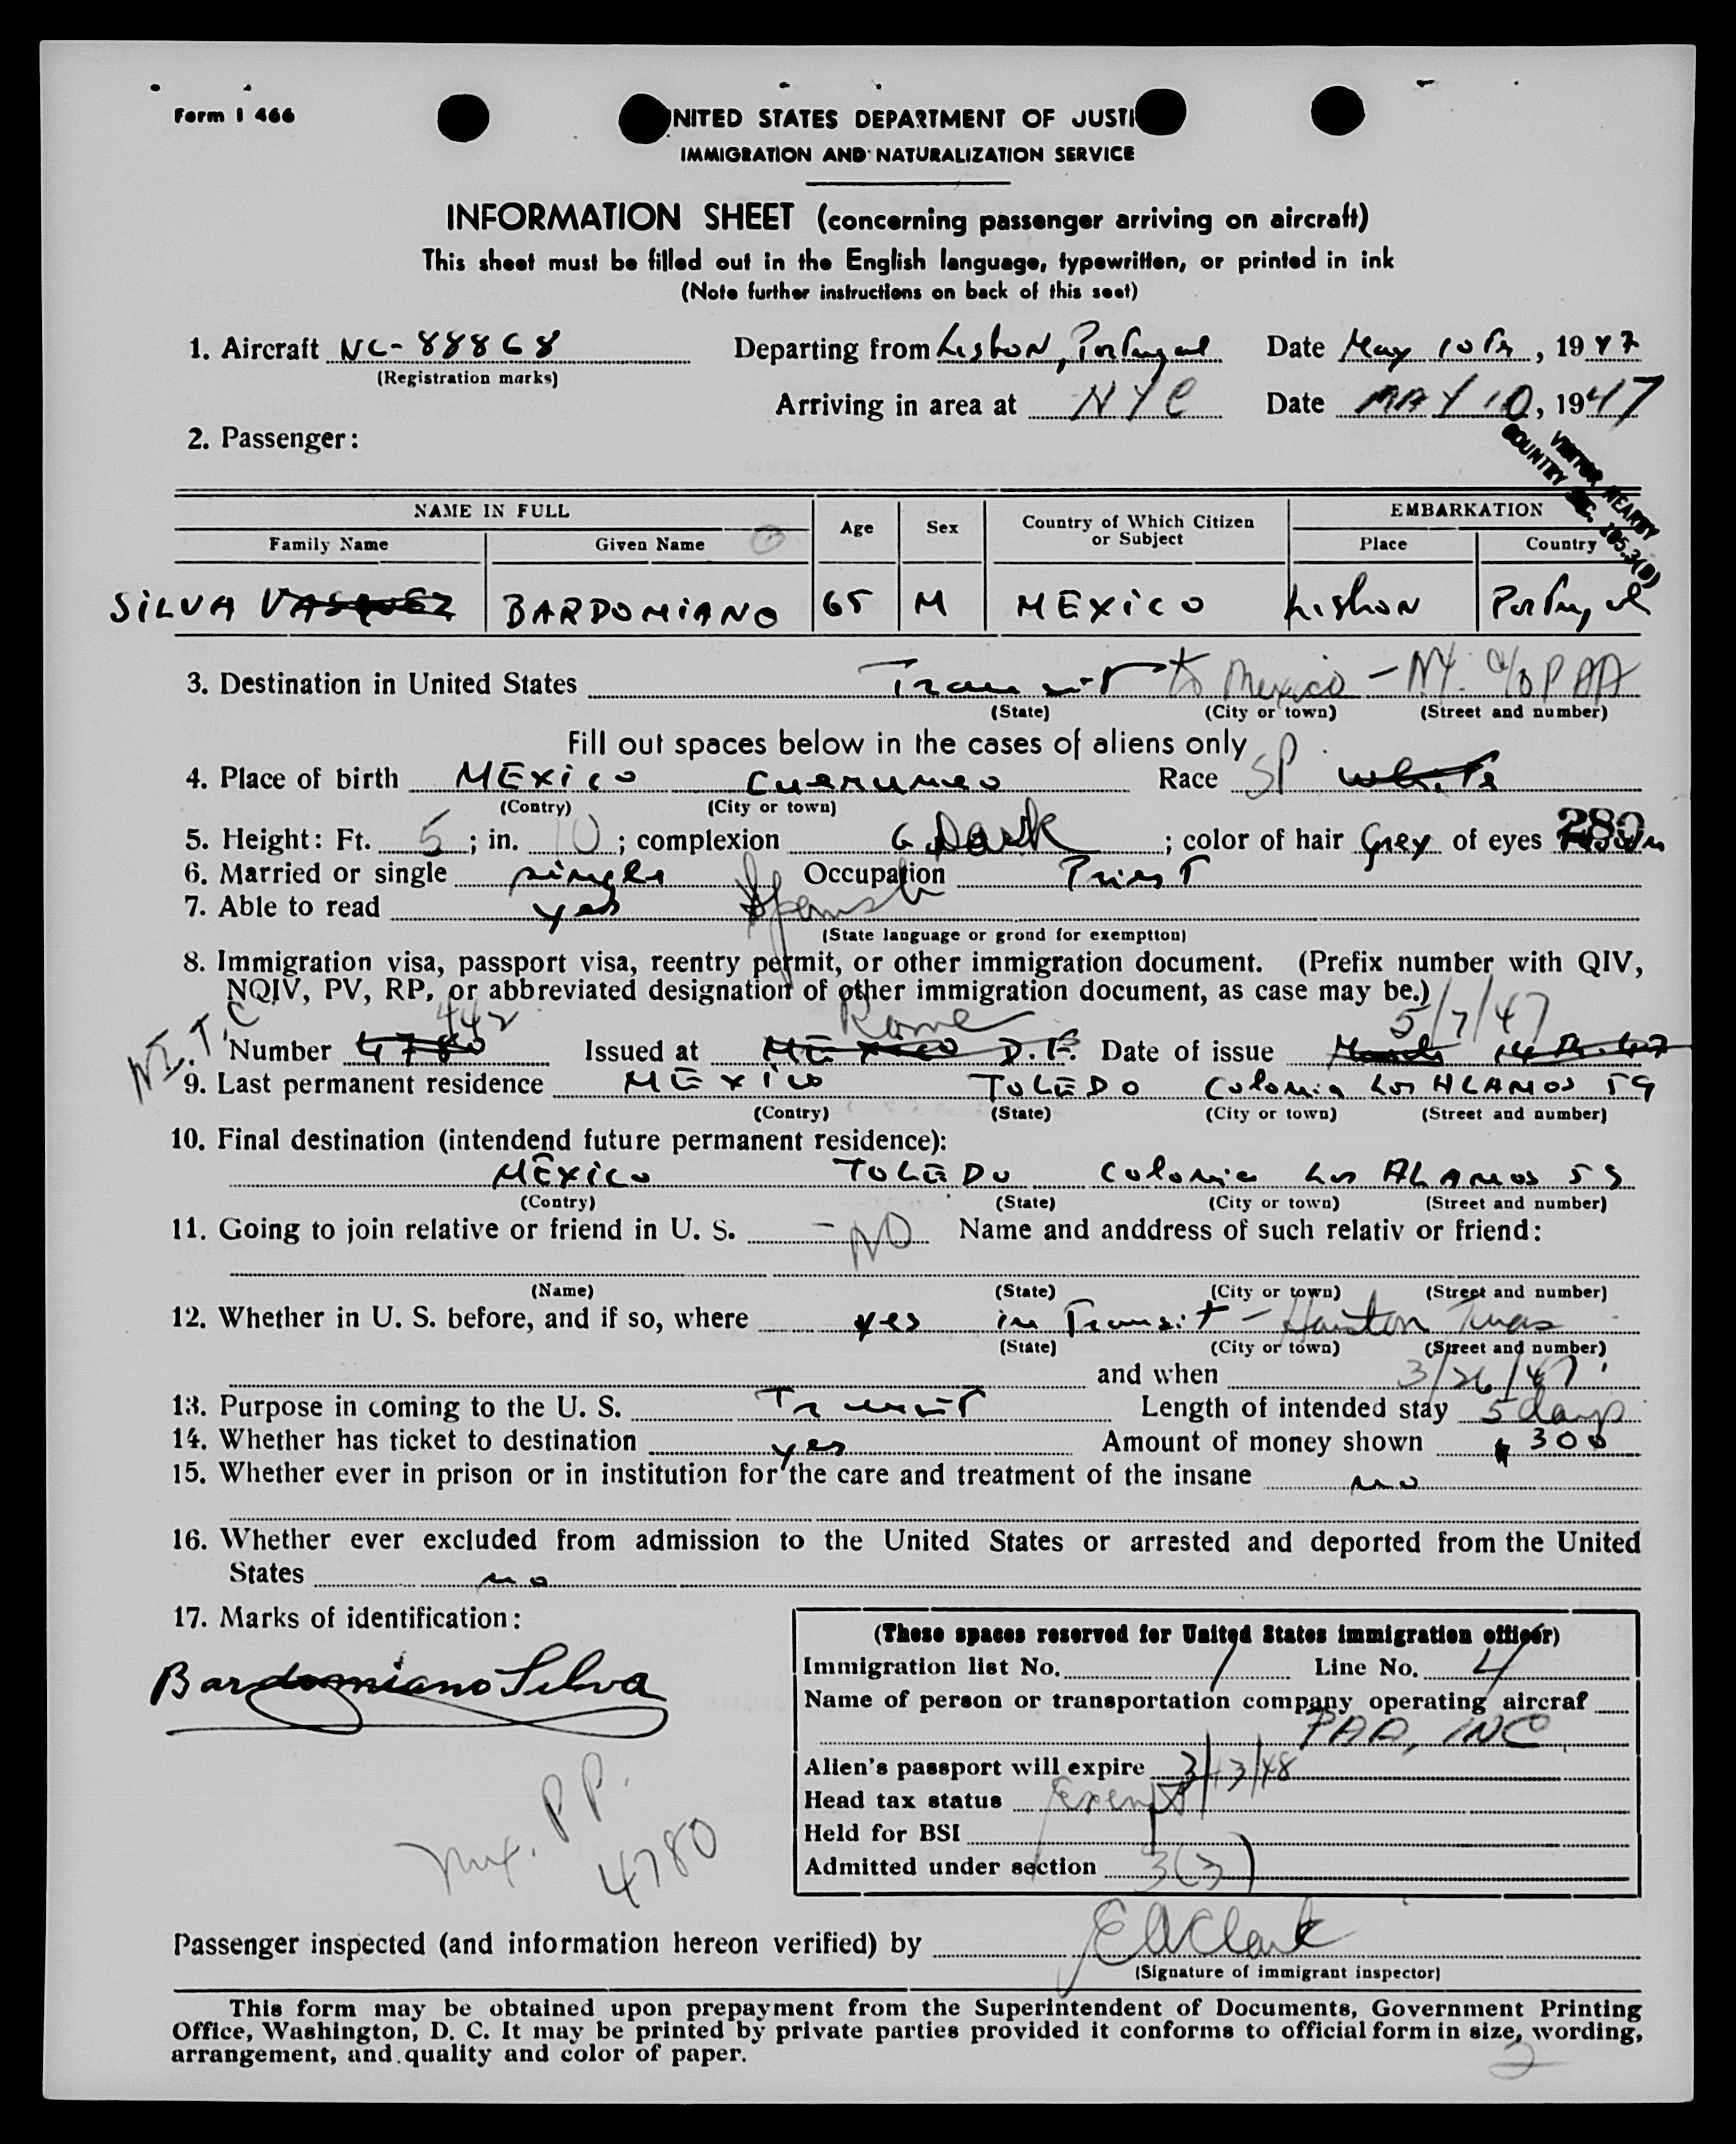 Form I 466
NITED STATES DEPARTMENT OF JUSTI
IMMIGRATION AND NATURALIZATION SERVICE
INFORMATION SHEET (concerning passenger arriving on aircraft)
This sheet must be filled out in the English language, typewritten, or printed in ink
(Note further instructions on back of this seet)
1. Aircraft NC-88868 Departing from Lisbon, Portugal Date May 10th, 1947
(Registration marks)
Arriving in area at NYC Date MAY 10, 1947
2. Passenger:
VISITOR NEARBY
COUNTRY SEC. 165.3(B)
NAME IN FULL Age Sex Country of Which Citizen or Subject EMBARKATION
Family Name Given Name Place Country
SILVA VASQUEZ BARDOMIANO 65 M MEXICO Lisbon Portugal
3. Destination in United States Transit to Mexico - NY. c/o PAA
(State) (City or town) (Street and number)
Fill out spaces below in the cases of aliens only
4. Place of birth MEXICO Cuerumeo Race SP white
(Contry) (City or town)
5. Height: Ft. 5; in. 10; complexion Dark; color of hair Grey of eyes 280
6. Married or single single Occupation Priest
7. Able to read yes Spanish
(State language or grond for exemptton)
8. Immigration visa, passport visa, reentry permit, or other immigration document. (Prefix number with QIV,
NQIV, PV, RP, or abbreviated designation of other immigration document, as case may be.)
442 Rome 5/7/47
Number 4780 Issued at MEXICO D.F. Date of issue March 14th. 47
9. Last permanent residence MEXICO TOLEDO Colonia Los ALAMOS 59
(Contry) (State) (City or town) (Street and number)
10. Final destination (intendend future permanent residence):
MEXICO TOLEDO Colonia Los ALAMOS 59
(Contry) (State) (City or town) (Street and number)
11. Going to join relative or friend in U. S. - NO Name and anddress of such relativ or friend:
(Name) (State) (City or town) (Street and number)
12. Whether in U. S. before, and if so, where yes in Transit - Houston Texas
(State) (City or town) (Street and number)
and when 3/26/47
13. Purpose in coming to the U. S. Transit Length of intended stay 5 days
14. Whether has ticket to destination yes Amount of money shown $ 300
15. Whether ever in prison or in institution for the care and treatment of the insane no
16. Whether ever excluded from admission to the United States or arrested and deported from the United
States no
17. Marks of identification:
Bardomiano Silva
Mex. PP.
4780
(These spaces reserved for United States immigration officer)
Immigration list No. 1 Line No. 4
Name of person or transportation company operating aircraf
PAA, INC
Alien's passport will expire 3/13/48
Head tax status Exempt
Held for BSI
Admitted under section 3(3)
Passenger inspected (and information hereon verified) by EAClark
(Signature of immigrant inspector)
This form may be obtained upon prepayment from the Superintendent of Documents, Government Printing
Office, Washington, D. C. It may be printed by private parties provided it conforms to official form in size, wording,
arrangement, and quality and color of paper.
2